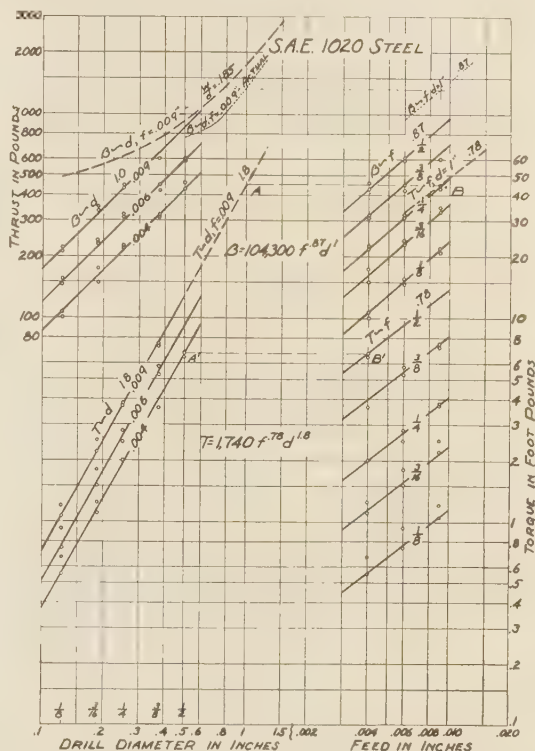 S.A.E. 1020 STEEL
3000
2000
1000
800
600
500
400
300
200
100
80
THRUST IN POUNDS
B~d, f=.009"
W/d=.185
B~d, f=.009" ACTUAL
B~f, d=1" .87
B~d
1.0
.009
.006
.004
T~d, f=.009
1.8
A
B=104,300 f^.87 d^1
T~d
1.8
.009
.006
.004
A'
T=1,740 f^.78 d^1.8
B~f
.87
1/2
3/8
1/4
3/16
1/8
T~f, d=1"
.78
B
T~f
.78
1/2
B'
3/8
1/4
3/16
1/8
60
50
40
30
20
10
8
6
5
4
3
2
1
.8
.6
.5
.4
.3
.2
.1
TORQUE IN FOOT POUNDS
1/8 3/16 1/4 3/8 1/2
.1 .2 .3 .4 .5 .6 .8 1 1.5 .002 .004 .006 .008 .010 .020
DRILL DIAMETER IN INCHES FEED IN INCHES